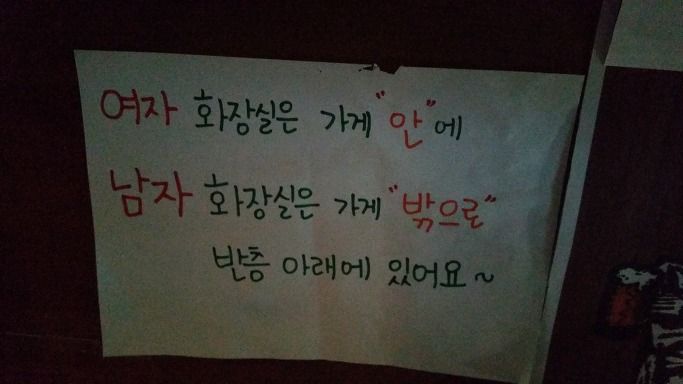 여자 화장실은 가게 "안"에
남자 화장실은 가게 "밖으로"
반층 아래에 있어요~